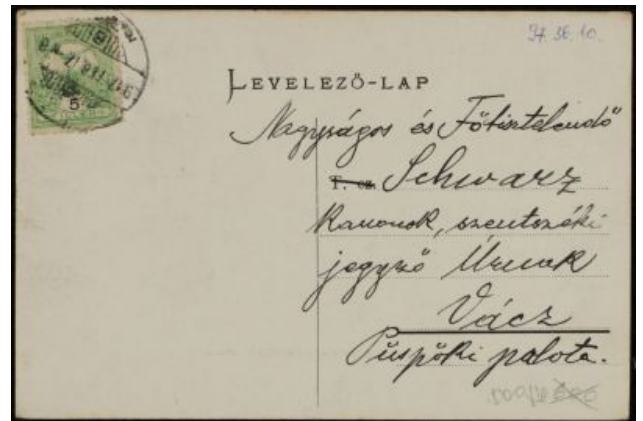 37.36.10.
LEVELEZŐ-LAP
Nagyságos és Főtisztelendő
T. cz. Schwarz
kanonok, szentszéki
jegyző Úrnak
Vácz
Püspöki palota.
5